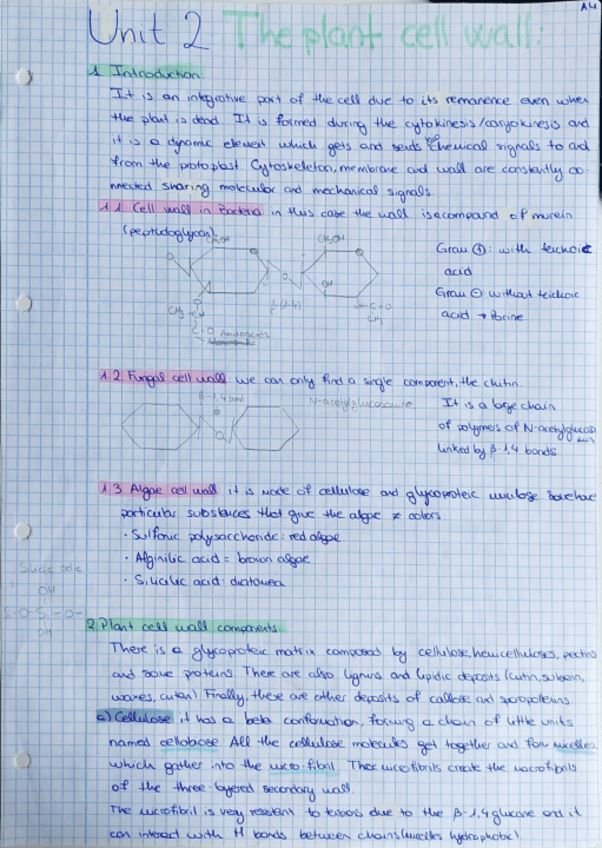 A4
Unit 2 The plant cell wall:
1. Introduction
It is an integrative part of the cell due to its remanence even when
the plant is dead. It is formed during the cytokinesis/caryokinesis and
it is a dynamic element which gets and sends chemical signals to and
from the protoplast. Cytoskeleton, membrane and wall are constantly co-
nnected sharing molecular and mechanical signals.
1.1. Cell wall in Bacteria in this case the wall is a compound of murein
(peptidoglycan).
CH₂OH
CH₂OH
Gram +: with teichoic
acid
OH
Gram -: without teichoic
β(1-4)
acid → Porine
CH₃
C=O
CH₃
C=O Aminoacids
1.2. Fungal cell wall we can only find a single component, the chitin.
β-1,4 bond
N-acetylglucosamine
It is a large chain
of polymers of N-acetylglucosamin
linked by β-1,4 bonds
1.3 Algae cell wall it is made of cellulose and glycoproteic
particular substances that give the algae ≠ colors.
· Sulfonic polysaccharide: red algae
· Alginilic acid = brown algae
· Silicilic acid: diatomea
OH
-O-Si-O-
OH
2. Plant cell wall components
There is a glycoproteic matrix composed by cellulose, hemicelluloses, pectins
and some proteins. There are also lignins and lipidic deposits (cutin, suberin,
waxes, cutan). Finally, there are other deposits of callose and sporopolenins.
a) Cellulose it has a beta conformation, forming a chain of little units
named cellobiose. All the cellulose molecules get together and form micelles,
which gather into the microfibril. Those microfibrils create the macrofibrils
of the three-layered secondary wall.
The microfibril is very resistant to due to the β-1,4 glucane and it
can interact with H bonds between chains (micelles hydrophobic).